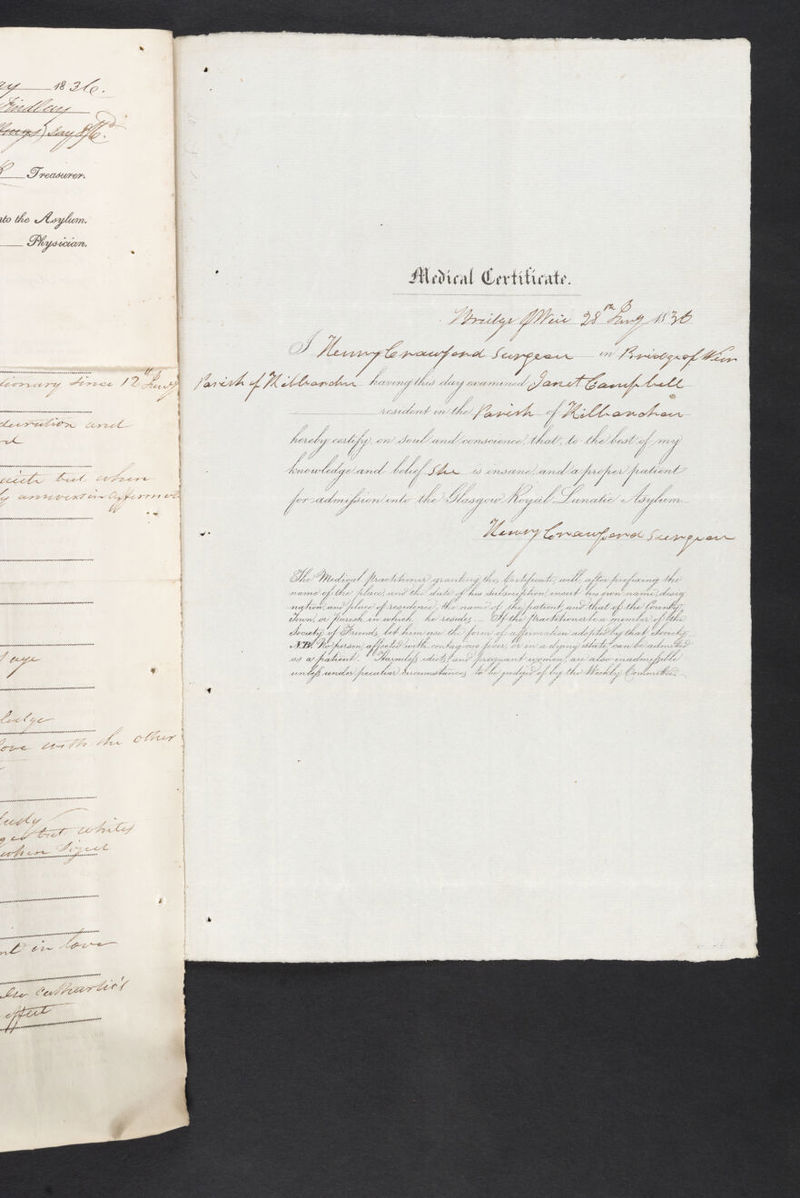 1836.
Findlay
Treasurer.
into the Asylum.
Physician.
since 12th Jany
duration and
but when
age
love with the other
but whiles
when
in love
cathartics
effect
Medical Certificate.
Bridge of Weir 28th Jany 1836
I Henry Crawford Surgeon in Bridge of Weir
Parish of Kilbarchan having this day examined Janet Campbell
resident in the Parish of Kilbarchan
hereby certify, on soul and conscience, that, to the best of my
knowledge and belief She is insane, and a proper patient
for admission into the Glasgow Royal Lunatic Asylum
Henry Crawford Surgeon
The Medical Practitioner granting this Certificate, will, after prefixing the
name of the place, and the date of his subscription, insert his own name, desig
nation, and place of residence, the name of the patient, and that of the County,
Town, or Parish in which he resides. If the Practitioner be a member of the
Society of Friends, let him use the form of affirmation adopted by that Society.
N.B. No person affected with contagious fever, or in a dying state, can be admitted
as a patient. Harmless idiots, and pregnant women, are also inadmissible
unless under peculiar circumstances, to be judged of by the Weekly Committee.